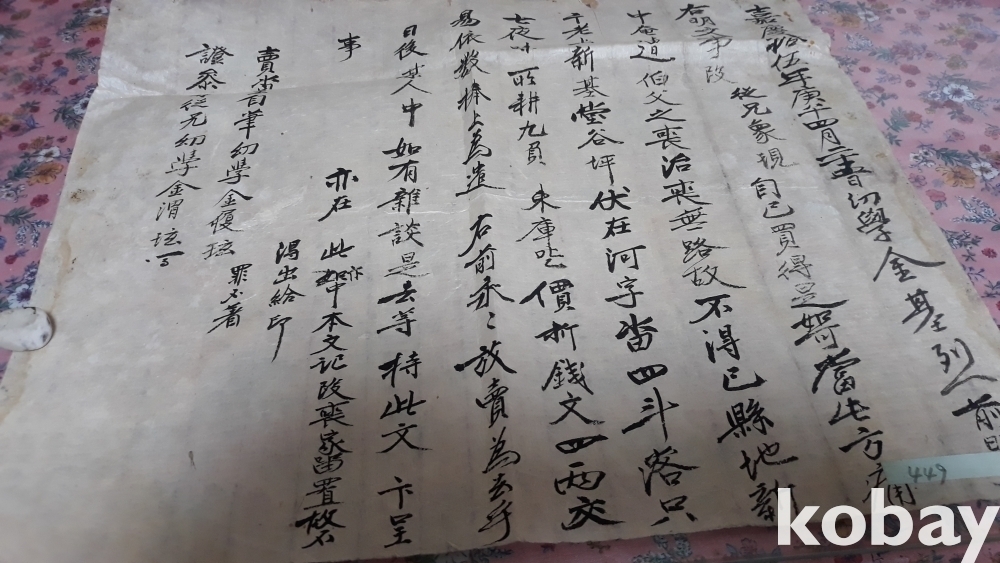 嘉慶拾伍年庚午四月二十日幼學金基列前明
右明文事段 從兄象規 自己買得是如可當此方
中 伯父之喪治喪無路故 不得已縣地
新基堂谷坪 伏在河字畓四斗落只
七夜味 所耕九負 東庫 價折錢文四兩交
易依數捧上為遣 右前永永放賣為去乎
日後某人中 如有雜談是去等 持此文 卞呈
事 亦在 此卞本文記段喪家留置故不
得出給印
畓主自筆幼學金 罪不着
證參從兄幼學金渭
449
kobay